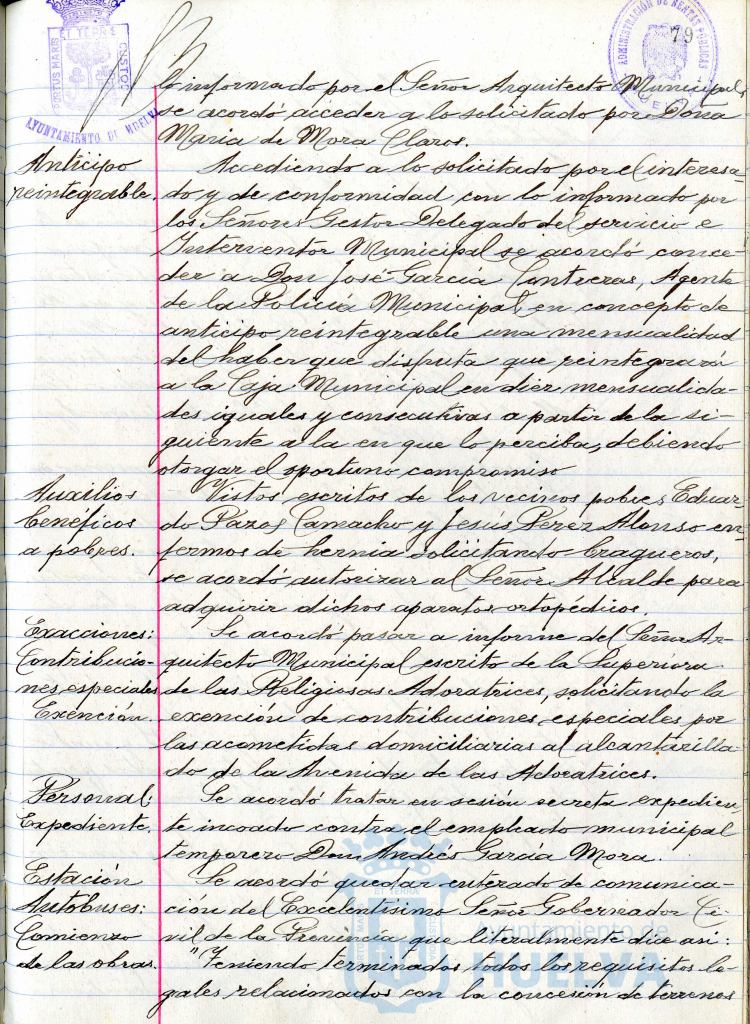 79
PORTUS MARIS ET TERRE CUSTOD
AYUNTAMIENTO DE HUELVA
ADMINISTRACIÓN DE RENTAS PÚBLICAS
lo informado por el Señor Arquitecto Municipal,
se acordó acceder a lo solicitado por Doña
Maria de Mora Claros.
Anticipo
reintegrable.
Accediendo a lo solicitado por el interesa-
do y de conformidad con lo informado por
los Señores Gestor Delegado del servicio e
Interventor Municipal se acordó conce-
der a Don José García Contreras, Agente
de la Policía Municipal, en concepto de
anticipo reintegrable una mensualidad
del haber que disfruta que reintegrará
a la Caja Municipal en diez mensualida-
des iguales y consecutivas a partir de la si-
guiente a la en que lo perciba, debiendo
otorgar el oportuno compromiso
Auxilios
benéficos
a pobres.
Vistos escritos de los vecinos pobres Eduar-
do Pazos Camacho y Jesús Pérez Alonso en-
fermos de hernia solicitando bragueros,
se acordó autorizar al Señor Alcalde para
adquirir dichos aparatos ortopédicos.
Exacciones:
Contribucio-
nes especiales
Exención.
Se acordó pasar a informe del Señor Ar-
quitecto Municipal escrito de la Superiora
de las Religiosas Adoratrices, solicitando la
exención de contribuciones especiales por
las acometidas domiciliarias al alcantarilla-
do de la Avenida de las Adoratrices.
Personal:
Expediente.
Se acordó tratar en sesión secreta expedien-
te incoado contra el empleado municipal
temporero Don Andrés García Mora.
Estación
Autobuses:
Comienzo
de las obras.
Se acordó quedar enterado de comunica-
ción del Excelentísimo Señor Gobernador Ci-
vil de la Provincia que literalmente dice asi:
"Teniendo terminados todos los requisitos le-
gales relacionados con la concesión de terrenos
Ayuntamiento de
HUELVA